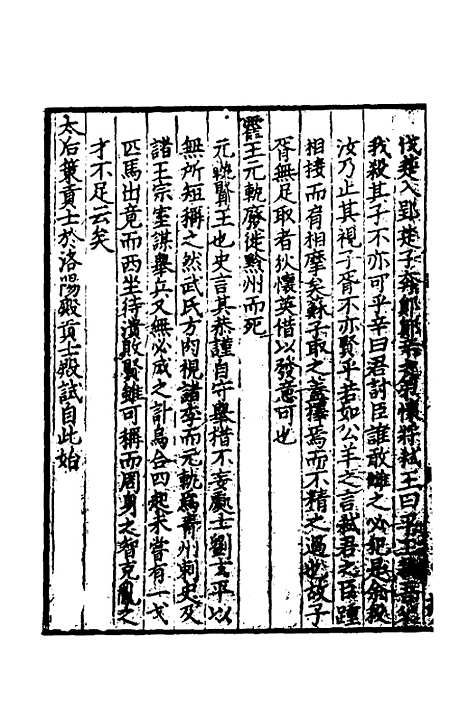 伐楚入郢楚子奔鄖鄖公之弟懷將弒王曰平王殺吾父
我殺其子不亦可乎辛曰君討臣誰敢讎之必犯是余殺
汝乃止其視子胥不亦賢乎若如公羊之言弒君之臣踵
相接而肩相摩矣蘇子取之蓋擇焉而不精之過也故子
胥無足取者狄懷英借以發意可也
霍王元軌廢徙黔州而死
元軌賢王也史言其恭謹自守舉措不妄處士劉玄平以
無所短稱之然武氏方內視諸李而元軌為青州刺史及
諸王宗室謀舉兵又無必成之計烏合四起未嘗有一戈
匹馬出竟而西坐待潰敗賢雖可稱而周身之智克亂之
才不足云矣
太后策貢士於洛陽殿貢士殿試自此始